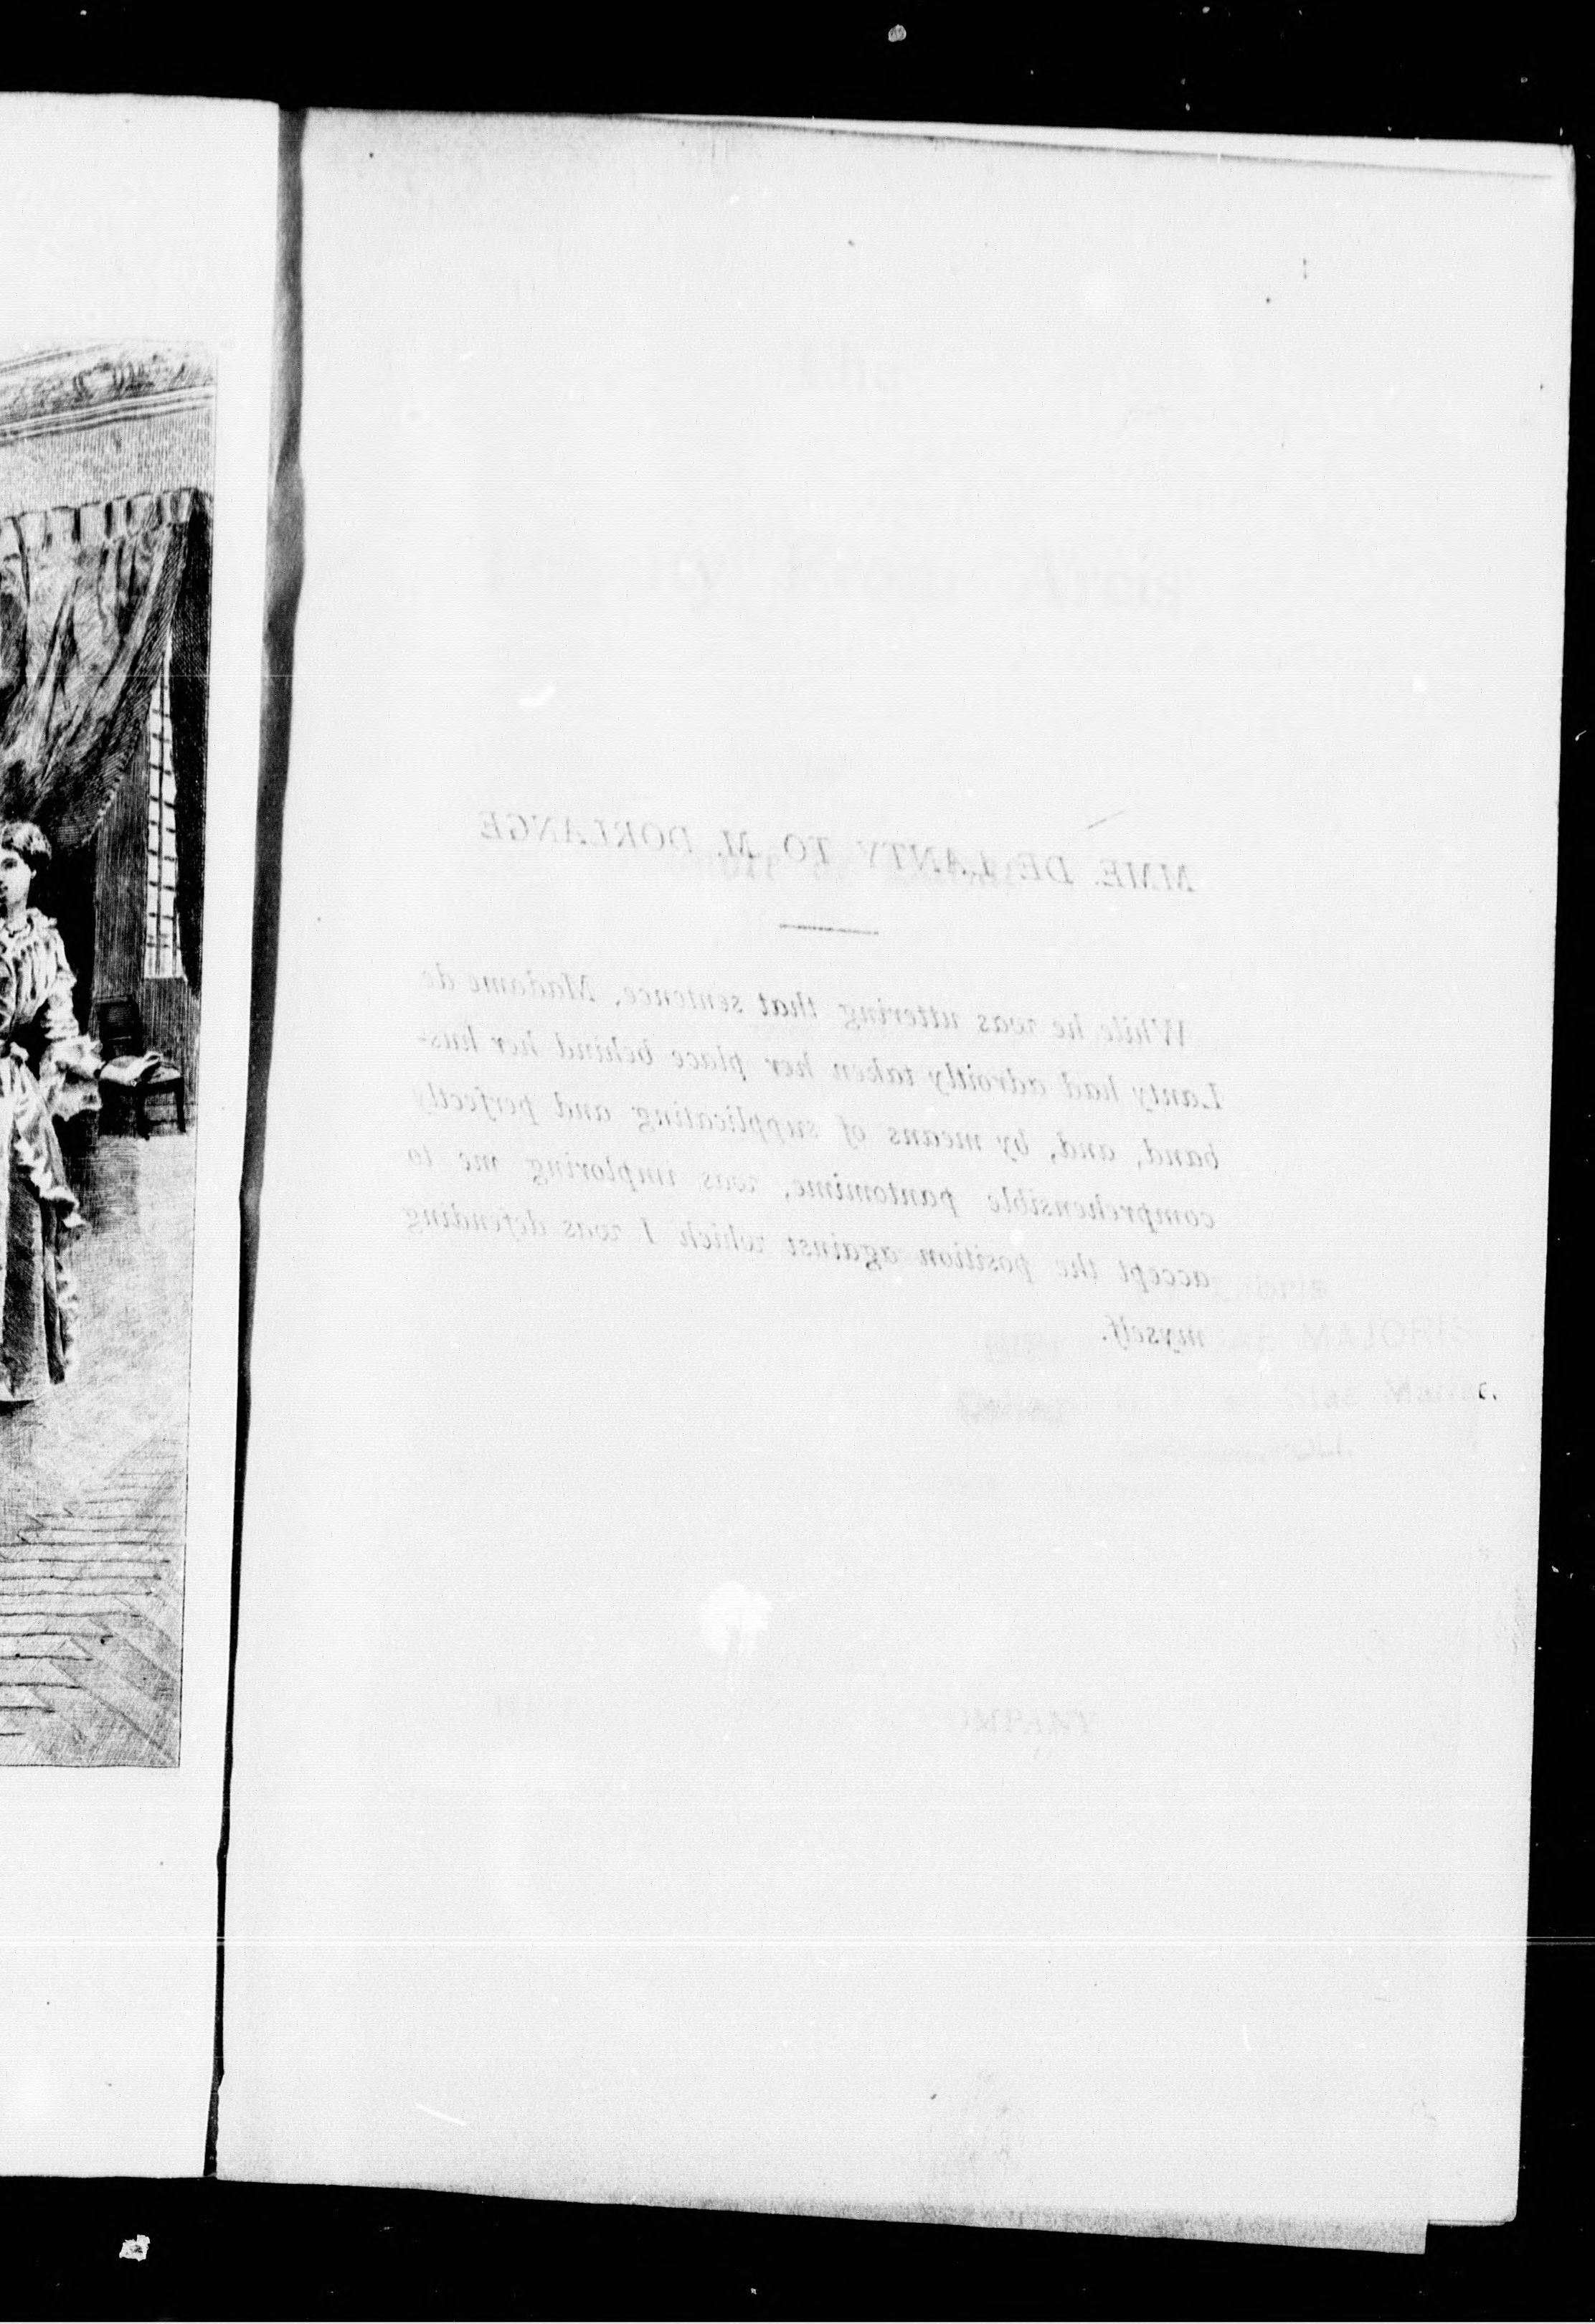 MME. DE LANTY TO M. DORLANGE
While he was uttering that sentence, Madame de
Lanty had adroitly taken her place behind her hus-
band, and, by means of supplicating and perfectly
comprehensible pantomime, was imploring me to
accept the position against which I was defending
myself.
The
Arcis
c.